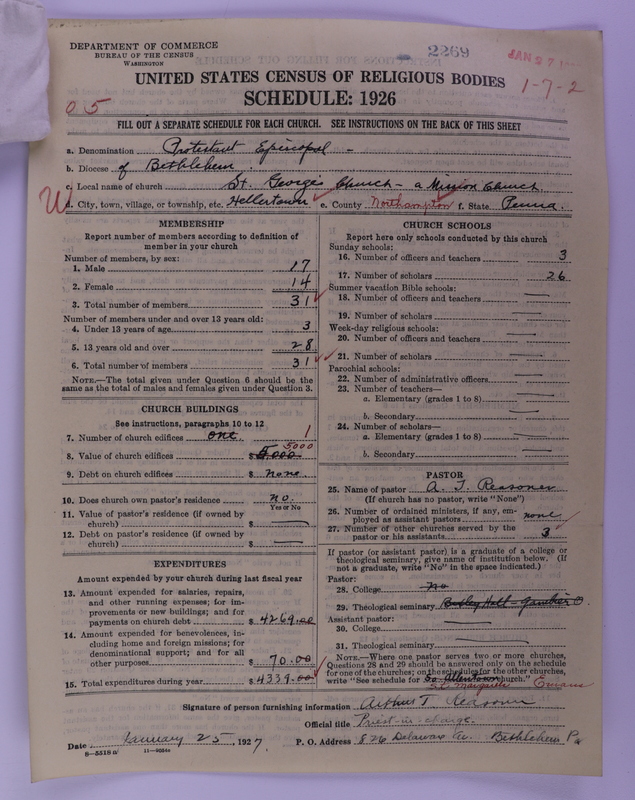 DEPARTMENT OF COMMERCE
BUREAU OF THE CENSUS
WASHINGTON
2269
JAN 27
1-7-2
05
UNITED STATES CENSUS OF RELIGIOUS BODIES
SCHEDULE: 1926
FILL OUT A SEPARATE SCHEDULE FOR EACH CHURCH. SEE INSTRUCTIONS ON THE BACK OF THIS SHEET
a. Denomination Protestant Episcopal -
b. Diocese of Bethlehem.
c. Local name of church St. George's Church - a Mission Church
d. City, town, village, or township, etc. Hellertown e. County Northampton f. State Penna.
MEMBERSHIP
Report number of members according to definition of
member in your church
Number of members, by sex:
1. Male 17
2. Female 14
3. Total number of members 31
Number of members under and over 13 years old:
4. Under 13 years of age 3
5. 13 years old and over 28
6. Total number of members 31
NOTE.—The total given under Question 6 should be the
same as the total of males and females given under Question 3.
CHURCH BUILDINGS
See instructions, paragraphs 10 to 12
7. Number of church edifices one 1
8. Value of church edifices $ 5000
9. Debt on church edifices $ none.
10. Does church own pastor's residence no.
Yes or No
11. Value of pastor's residence (if owned by
church) $
12. Debt on pastor's residence (if owned by
church) $
EXPENDITURES
Amount expended by your church during last fiscal year
13. Amount expended for salaries, repairs,
and other running expenses; for im-
provements or new buildings; and for
payments on church debt $ 4269.00
14. Amount expended for benevolences, in-
cluding home and foreign missions; for
denominational support; and for all
other purposes $ 70.00
15. Total expenditures during year $ 4339.00
CHURCH SCHOOLS
Report here only schools conducted by this church
Sunday schools:
16. Number of officers and teachers 3
17. Number of scholars 26
Summer vacation Bible schools:
18. Number of officers and teachers
19. Number of scholars
Week-day religious schools:
20. Number of officers and teachers
21. Number of scholars
Parochial schools:
22. Number of administrative officers
23. Number of teachers—
a. Elementary (grades 1 to 8)
b. Secondary
24. Number of scholars—
a. Elementary (grades 1 to 8)
b. Secondary
PASTOR
25. Name of pastor A. T. Reasoner
(If church has no pastor, write "None")
26. Number of ordained ministers, if any, em-
ployed as assistant pastors none
27. Number of other churches served by the
pastor or his assistants 3
If pastor (or assistant pastor) is a graduate of a college or
theological seminary, give name of institution below. (If
not a graduate, write "No" in the space indicated.)
Pastor:
28. College no
29. Theological seminary Bexley Hall - Gambier O
Assistant pastor:
30. College
31. Theological seminary
NOTE.—Where one pastor serves two or more churches,
Questions 28 and 29 should be answered only on the schedule
for one of the churches; on the schedules for the other churches,
write "See schedule for So Allentown church."
St. Margarets Emaus
Signature of person furnishing information Arthur T Reasoner
Official title Priest-in-charge.
Date January 25, 1927 P. O. Address 826 Delaware Av. Bethlehem Pa
8—5518a